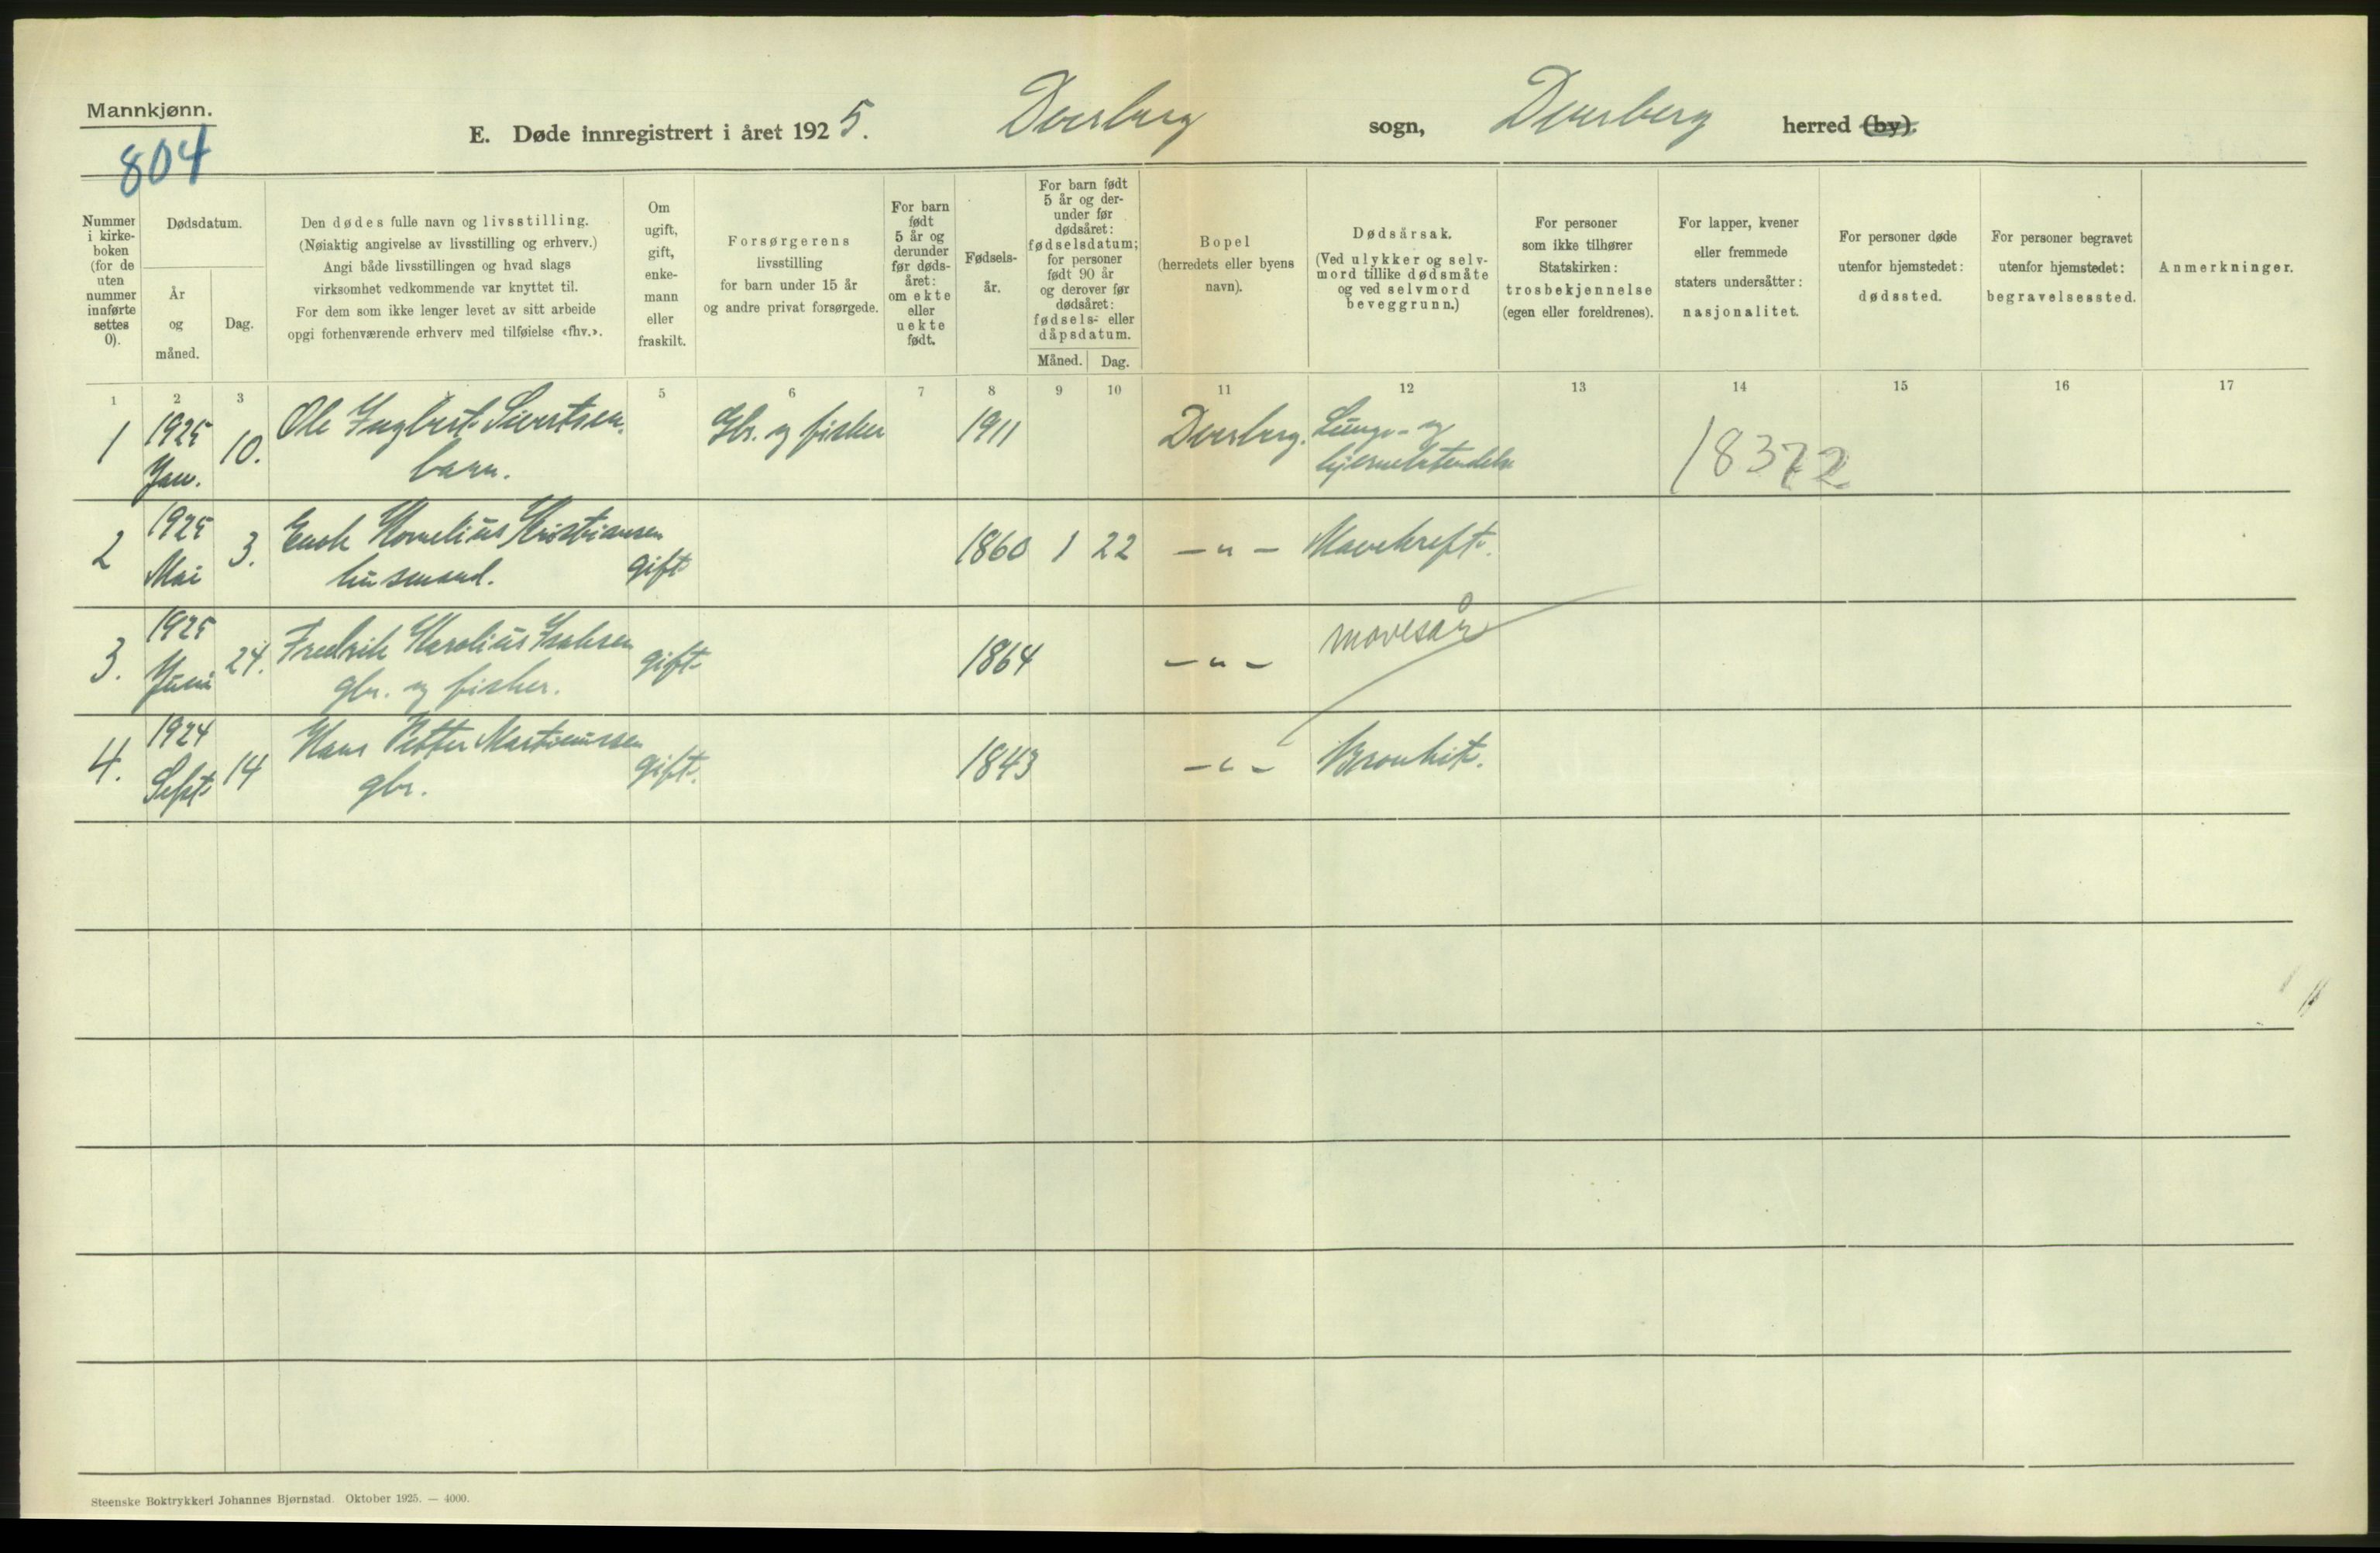 Mannkjønn.
804
E. Døde innregistrert i året 1925. Dverberg sogn, Dverberg herred (by).
Nummer i kirke-boken (for de uten nummer innførte settes 0).
Dødsdatum.
År og måned.
Dag.
Den dødes fulle navn og livsstilling.
(Nøiaktig angivelse av livsstilling og erhverv.)
Angi både livsstillingen og hvad slags
virksomhet vedkommende var knyttet til.
For dem som ikke lenger levet av sitt arbeide
opgi forhenværende erhverv med tilføielse «fhv.».
Om ugift, gift, enke-mann eller fraskilt.
Forsørgerens
livsstilling
for barn under 15 år
og andre privat forsørgede.
For barn født 5 år og derunder før døds-året: om ekte eller uekte født.
Fødsels-år.
For barn født 5 år og der-under før dødsåret: fødselsdatum; for personer født 90 år og derover før dødsåret: fødsels- eller dåpsdatum.
Måned. Dag.
Bopel
(herredets eller byens
navn).
Dødsårsak.
(Ved ulykker og selv-
mord tillike dødsmåte
og ved selvmord
beveggrunn.)
For personer
som ikke tilhører
Statskirken:
trosbekjennelse
(egen eller foreldrenes).
For lapper, kvener
eller fremmede
staters undersåtter:
nasjonalitet.
For personer døde
utenfor hjemstedet:
dødssted.
For personer begravet
utenfor hjemstedet:
begravelsessted.
Anmerkninger.
1 2 3 5 6 7 8 9 10 11 12 13 14 15 16 17
1 1925 Jan. 10. Ole Ingbert Sivertsen. Gbr. og fisker 1911 Dverberg. Lunge- og
barn. hjernebetendelse 18372
2 1925 Mai 3. Enok Kornelius Kristiansen gift 1860 1 22 — " — Mavekreft.
husmand.
3. 1925 Juni 24. Fredrik Karolius Isaksen gift 1864 — " — mavesår
gbr. og fisker.
4. 1924 Sept. 14 Hans Petter Martinussen gift. 1843 — " — Bronkit.
gbr.
Steenske Boktrykkeri Johannes Bjørnstad. Oktober 1925. — 4000.